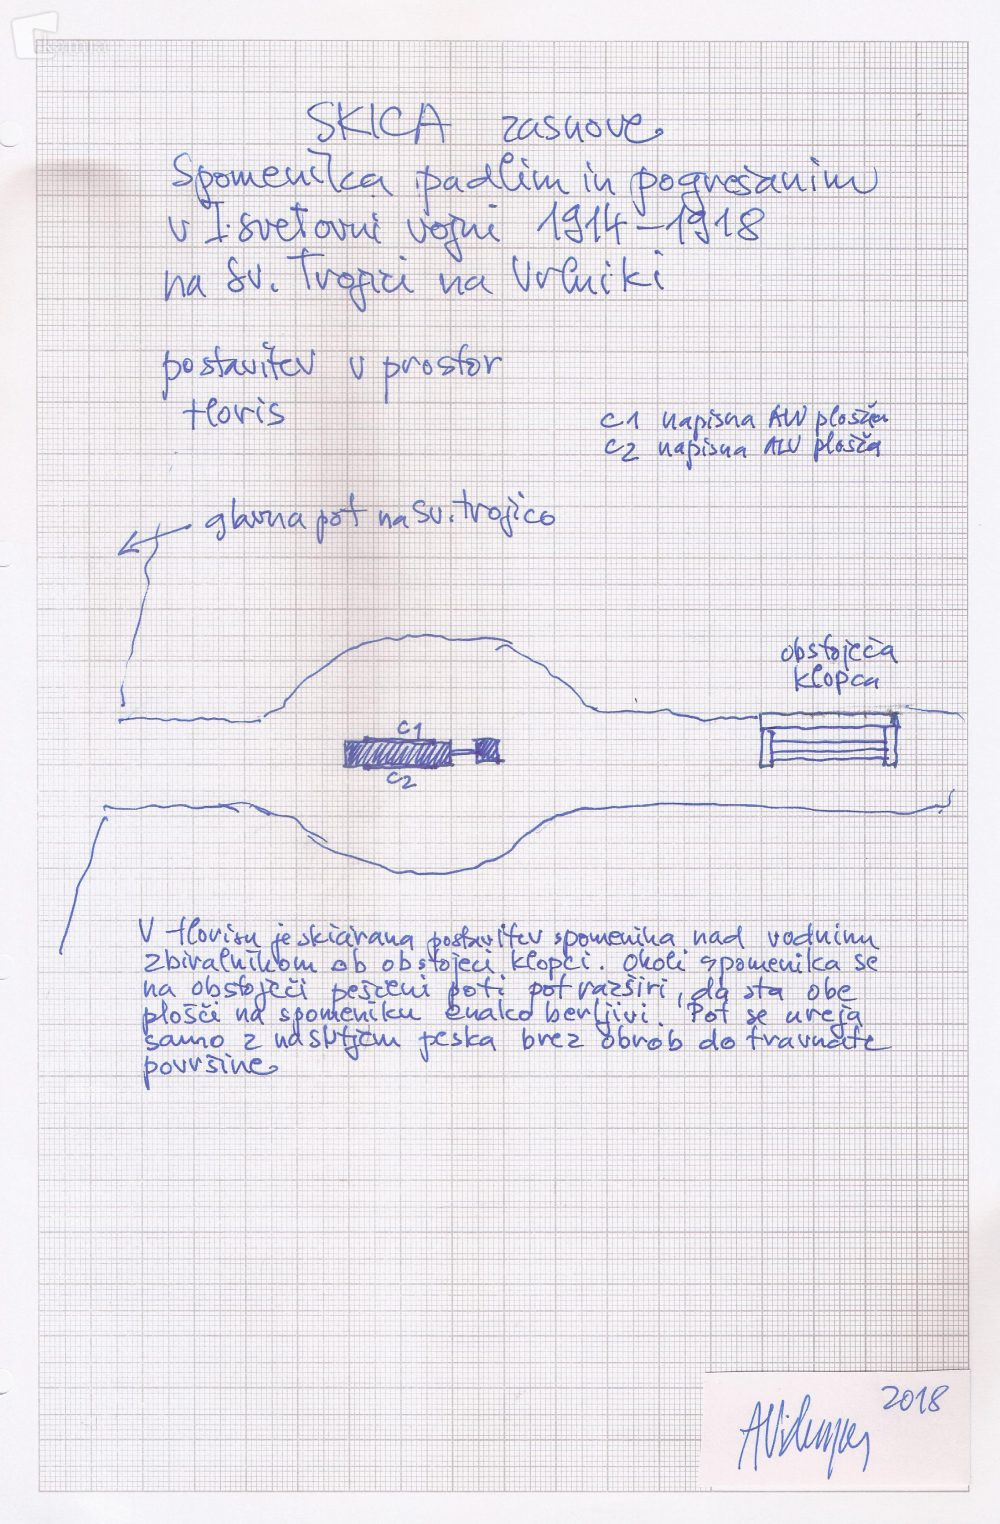 SKICA zasnove
Spomenika padlim in pogrešanim
v I. svetovni vojni 1914-1918
na Sv. Trojici na Vrhniki
postavitev v prostor
tloris
C1 napisna ALU plošča
C2 napisna ALU plošča
glavna pot na Sv. trojico
obstoječa
klopca
C1
C2
V tlorisu je skicirana postavitev spomenika nad vodnim
zbiralnikom ob obstoječi klopci. Okoli spomenika se
na obstoječi peščeni poti pot razširi, da sta obe
plošči na spomeniku enako berljivi. Pot se ureja
samo z nasutjem peska brez obrob do travnate
površine.
2018